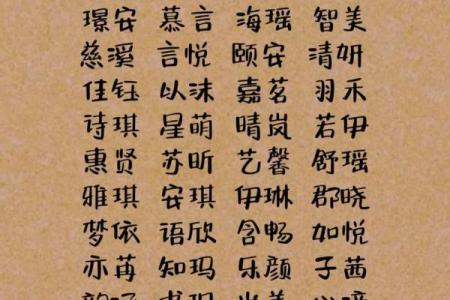 璟安 慕言 海瑶 智美
慈溪 言悦 颐安 清妍
佳钰 以沫 嘉茗 羽禾
诗琪 星萌 晴岚 若伊
惠贤 苏昕 艺馨 舒瑶
雅琪 安琪 伊琳 郡晓
梦依 语欣 含畅 如悦
亦苒 知玛 乐颜 子茜